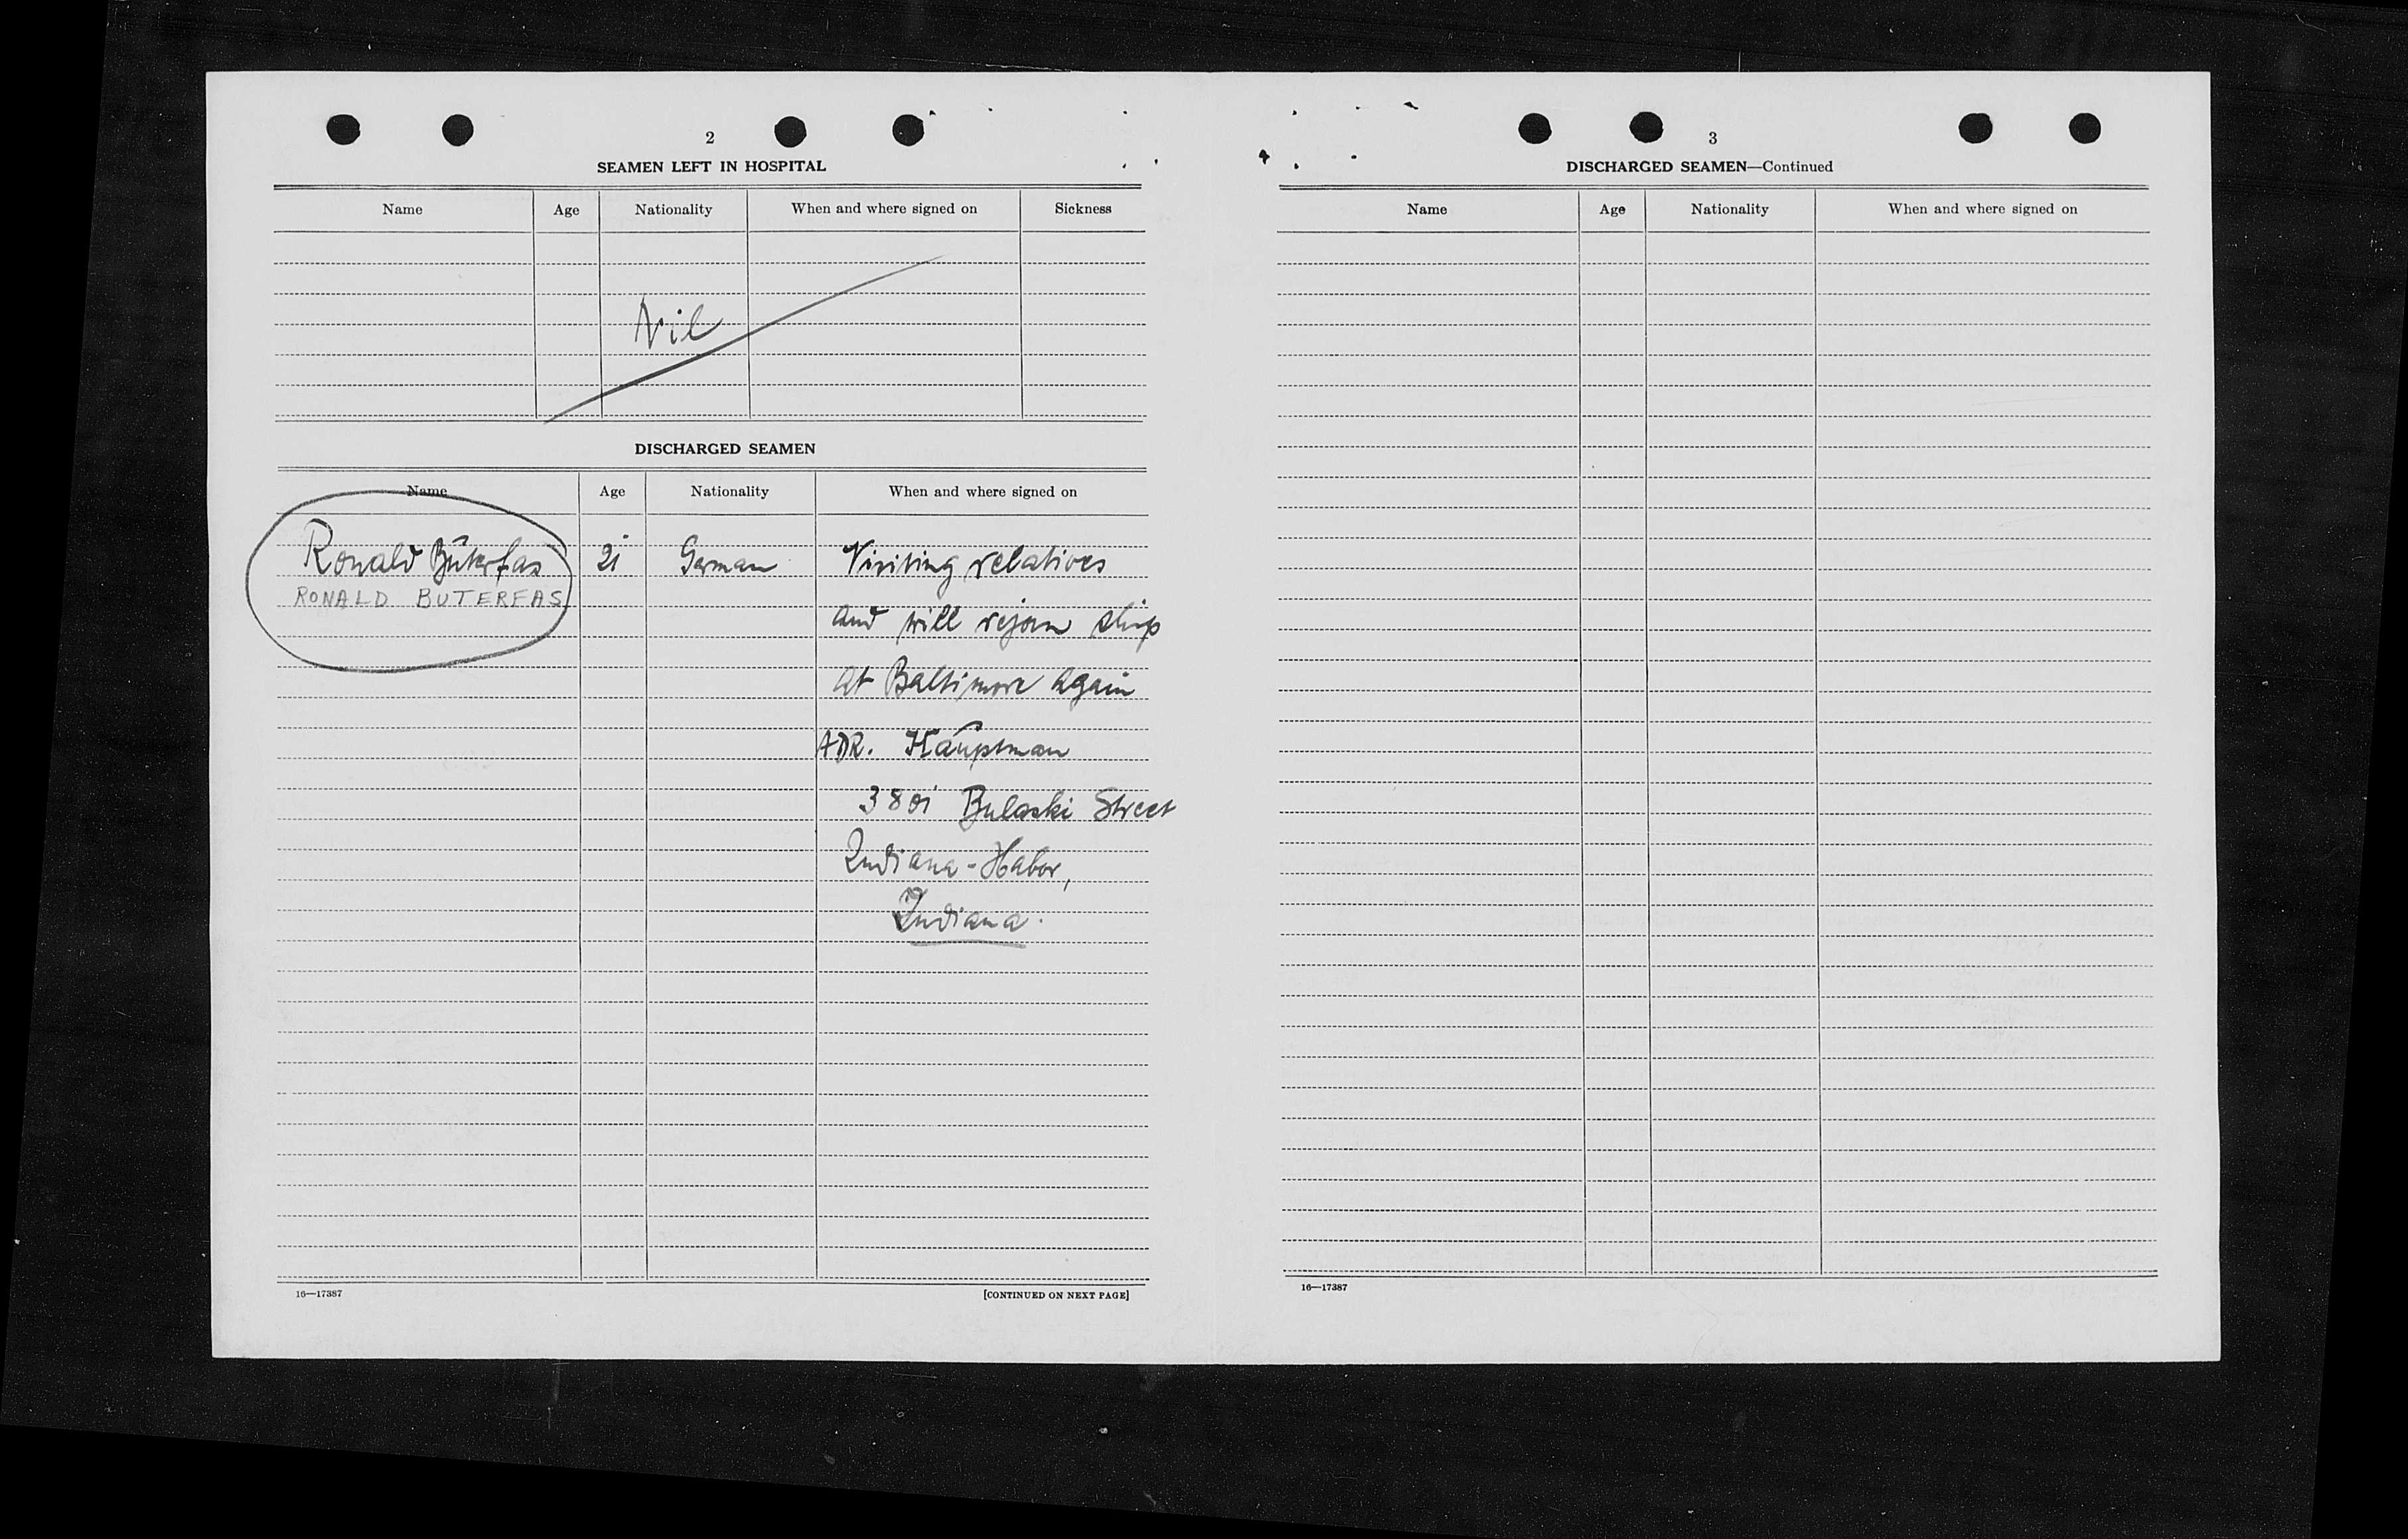 2
SEAMEN LEFT IN HOSPITAL
Name Age Nationality When and where signed on Sickness
Nil
DISCHARGED SEAMEN
Name Age Nationality When and where signed on
Ronald Büterfas 21 German Visiting relatives
RONALD BUTERFAS
and will rejoin ship
at Baltimore again
ADR. Hauptman
3801 Bulaski Street
Indiana-Habor,
Indiana.
16—17387 [CONTINUED ON NEXT PAGE]
3
DISCHARGED SEAMEN—Continued
Name Age Nationality When and where signed on
16—17387